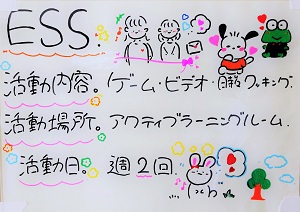 ESS.
活動内容。ゲーム・ビデオ・日韓クッキング.
活動場所。アクティブラーニングルーム.
活動日。週2回.